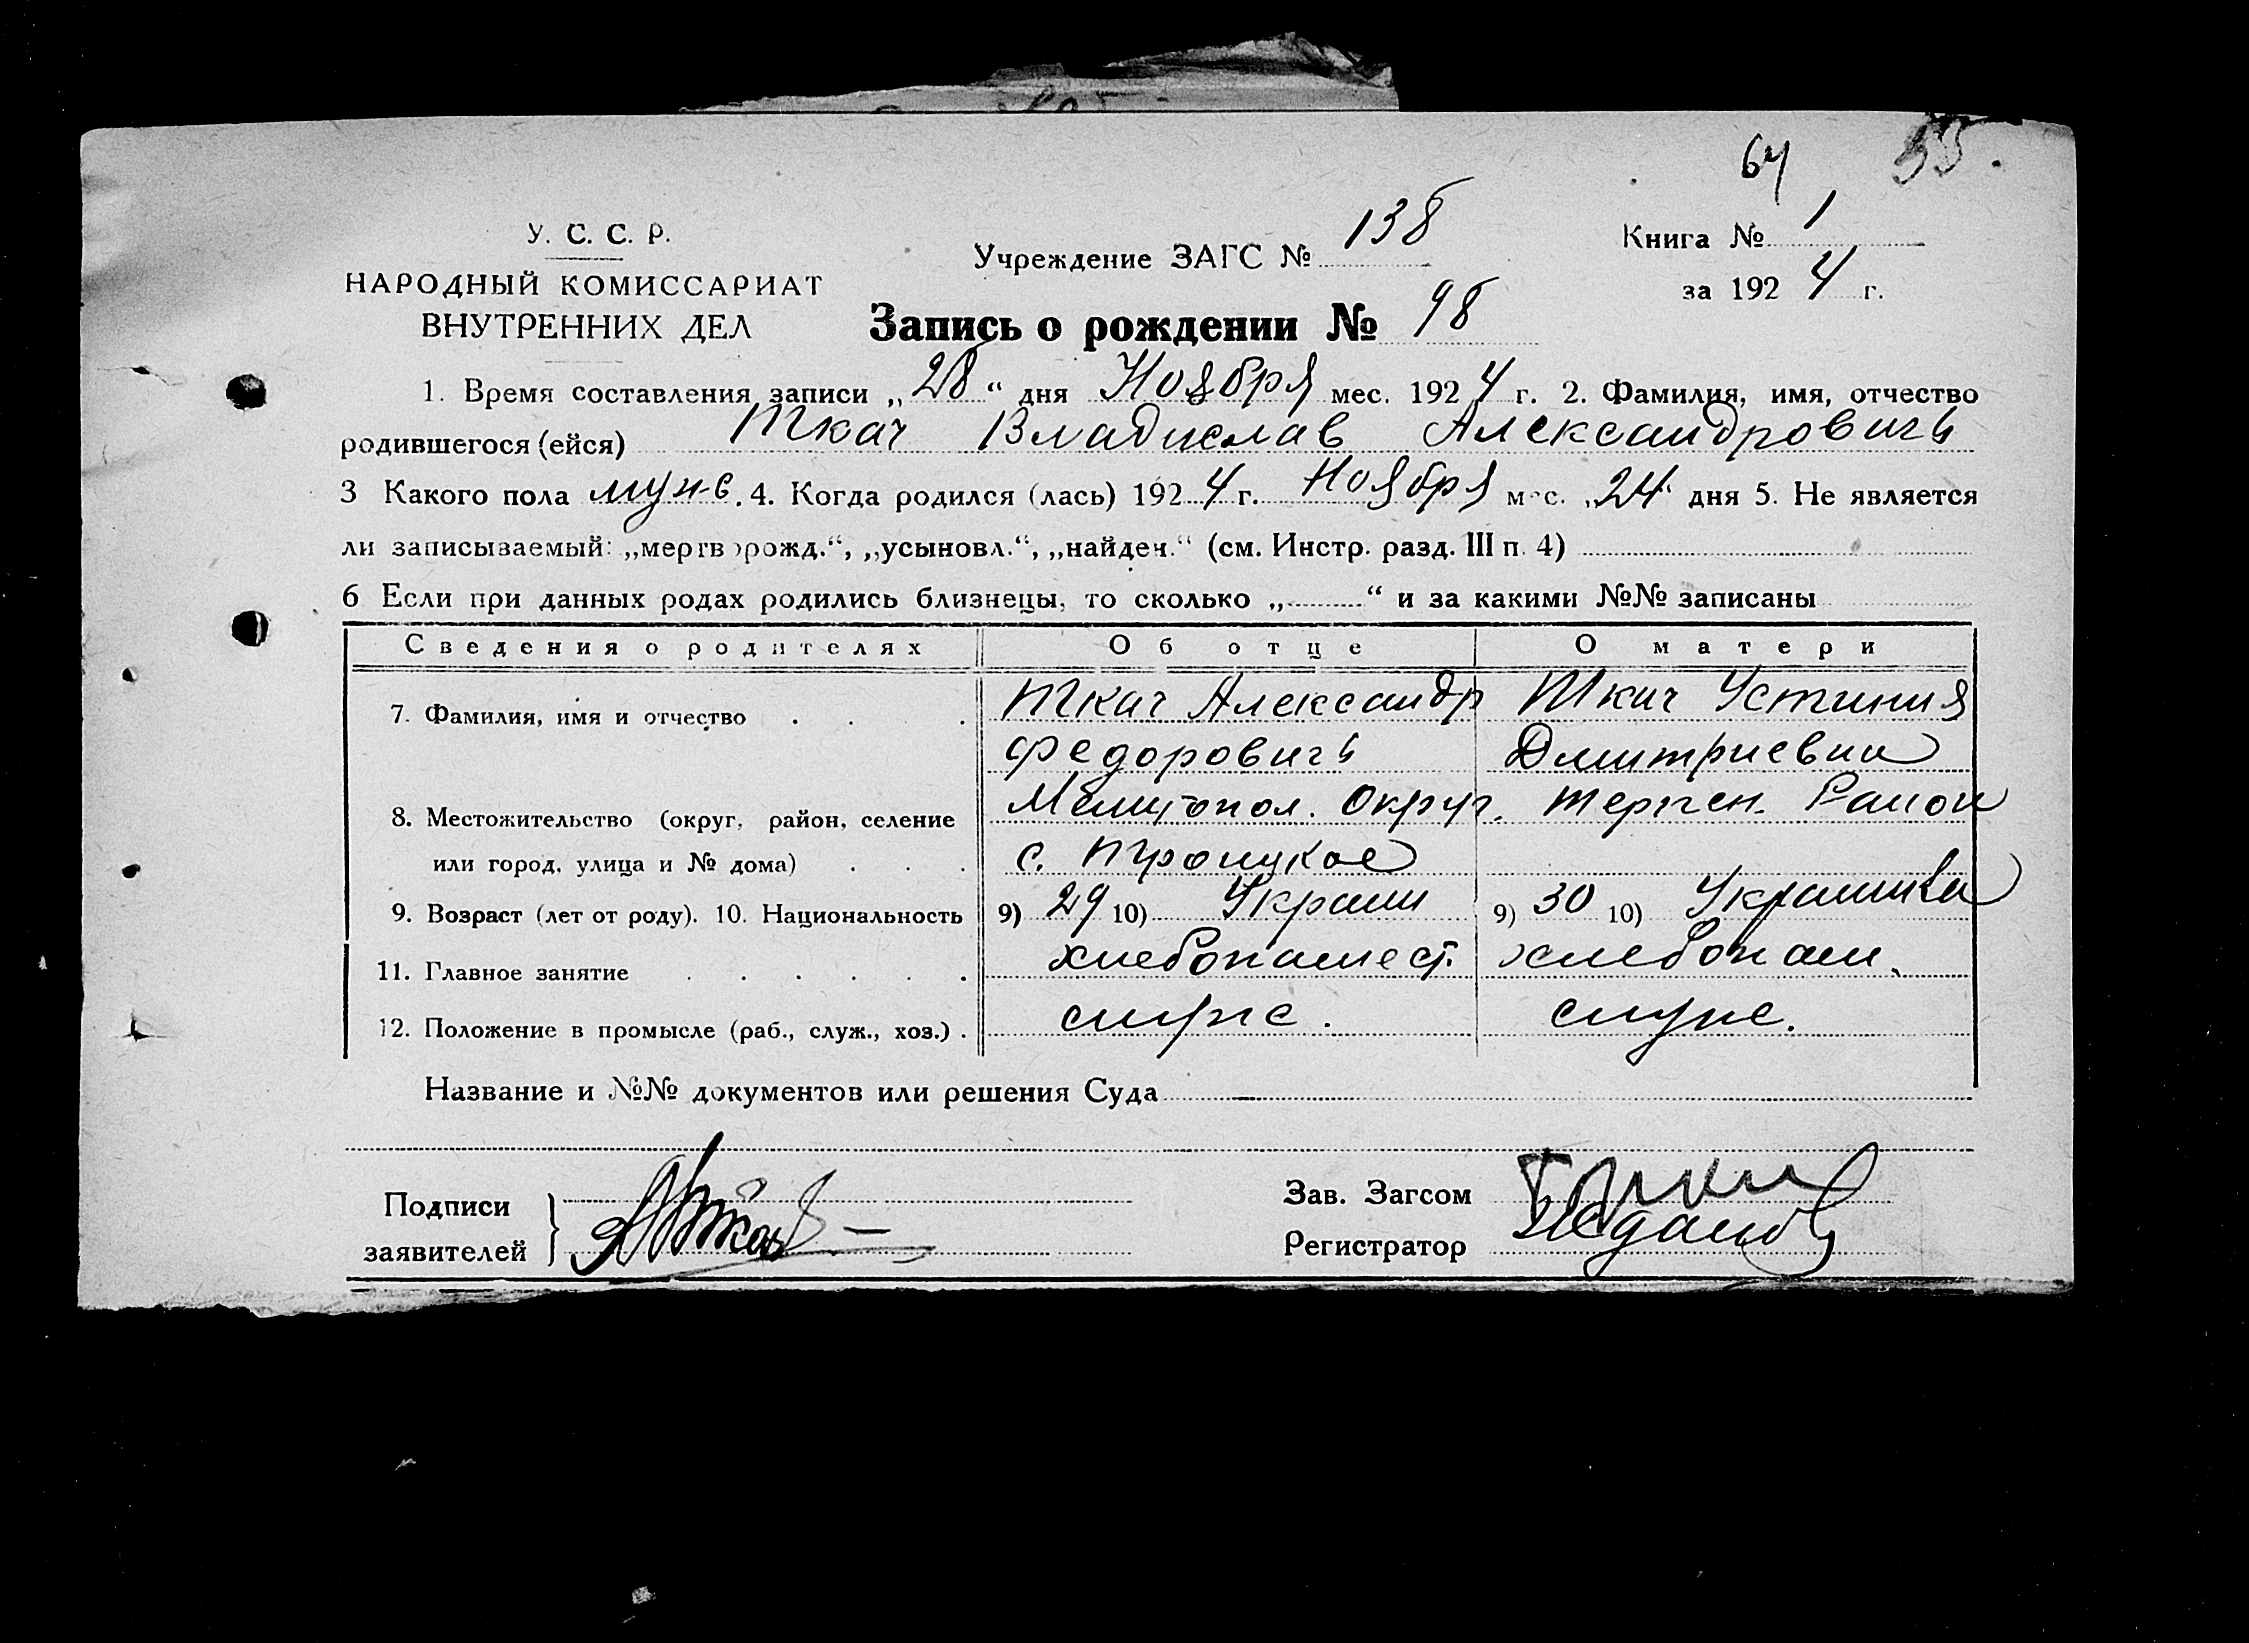 64 55.
У. С. С. Р.
НАРОДНЫЙ КОМИССАРИАТ
ВНУТРЕННИХ ДЕЛ
Учреждение ЗАГС № 138
Книга № 1
за 1924 г.
Запись о рождении № 98
1. Время составления записи „28“ дня Ноября мес. 1924 г. 2. Фамилия, имя, отчество
родившегося (ейся) Ткач Владислав Александровичъ
3 Какого пола муж. 4. Когда родился (лась) 1924 г. Ноября мес. „24“ дня 5. Не является
ли записываемый: „мертворожд.“, „усыновл.“, „найден.“ (см. Инстр. разд. III п. 4)
6 Если при данных родах родились близнецы, то сколько „ “ и за какими №№ записаны
Сведения о родителях Об отце О матери
7. Фамилия, имя и отчество Ткач Александр Ткач Устиния
Федоровичъ Дмитриевна
8. Местожительство (округ, район, селение Мелитопол. Округ. Терпен. Район
или город, улица и № дома) с. Троицкое
9. Возраст (лет от роду). 10. Национальность 9) 29 10) Украин 9) 30 10) Украинка
11. Главное занятие хлебопашест. хлебопаш.
12. Положение в промысле (раб., служ., хоз.) супр.
Название и №№ документов или решения Суда
Подписи
заявителей
Зав. Загсом
Регистратор